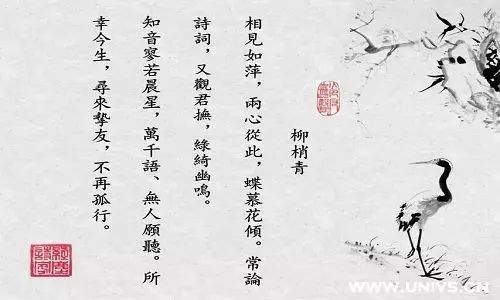 柳梢青
相見如萍，兩心從此，蝶慕花傾。常論
詩詞，又觀君撫，綠綺幽鳴。
知音寥若晨星，萬千語、無人願聽。所
幸今生，尋來摯友，不再孤行。
WWW.UNIVS.CN